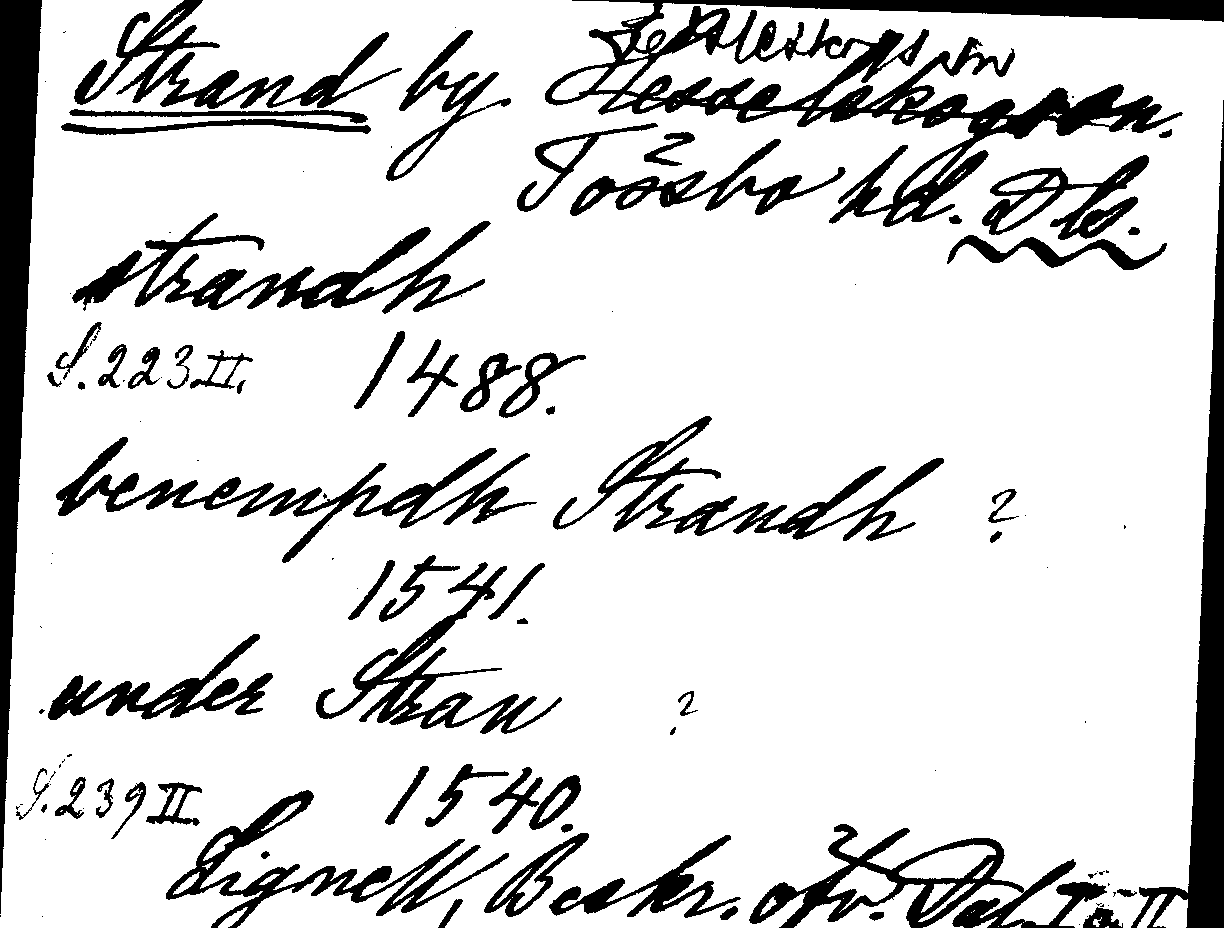 Strand by. Hesselskogs sn.
Tössbo hd. Dls.
strandh
S. 223 II. 1488.
benempdh Strandh ?
1541.
under Stran ?
S. 239 II. 1540.
Lignell, Beskr. öfv. Dal. I o. II